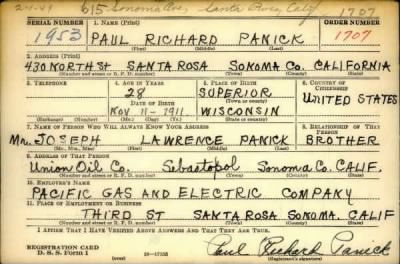 2-4-41 615 Sonoma Ave, Santa Rosa, Calif 1707
SERIAL NUMBER 1. NAME (Print) ORDER NUMBER
1953 PAUL RICHARD PANICK 1707
(First) (Middle) (Last)
2. ADDRESS (Print)
430 NORTH St SANTA ROSA SONOMA Co. CALIFORNIA
(Number and street or R. F. D. number) (Town) (County) (State)
3. TELEPHONE 4. AGE IN YEARS 5. PLACE OF BIRTH 6. COUNTRY OF CITIZENSHIP
28 SUPERIOR
DATE OF BIRTH (Town or county) UNITED STATES
NOV 11-1911. WISCONSIN
(Exchange) (Number) (Mo.) (Day) (Yr.) (State or country)
7. NAME OF PERSON WHO WILL ALWAYS KNOW YOUR ADDRESS 8. RELATIONSHIP OF THAT PERSON
Mr. JOSEPH LAWRENCE PANICK BROTHER
(First) (Middle) (Last)
9. ADDRESS OF THAT PERSON
Union Oil Co. Sebastopol Sonoma Co. CALIF.
(Number and street or R. F. D. number) (Town) (County) (State)
10. EMPLOYER'S NAME
PACIFIC GAS AND ELECTRIC COMPANY
11. PLACE OF EMPLOYMENT OR BUSINESS
THIRD ST SANTA ROSA SONOMA. CALIF
(Number and street or R. F. D. number) (Town) (County) (State)
I AFFIRM THAT I HAVE VERIFIED ABOVE ANSWERS AND THAT THEY ARE TRUE.
REGISTRATION CARD
D. S. S. Form 1 (over) 16—17105 Paul Richard Panick
(Registrant's signature)